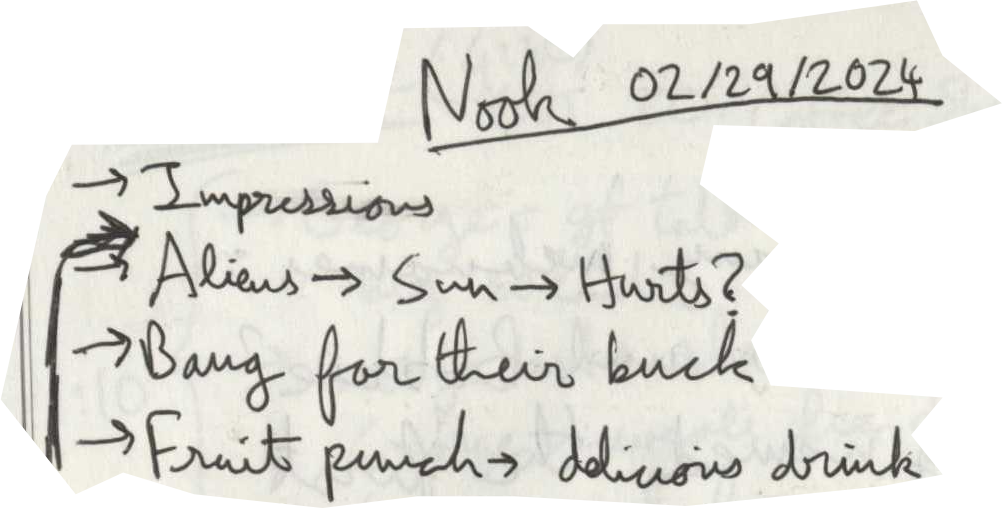 Nook 02/29/2024
→ Impressions
→ Aliens → Sun → Hurts?
→ Bang for their buck
→ Fruit punch → delicious drink